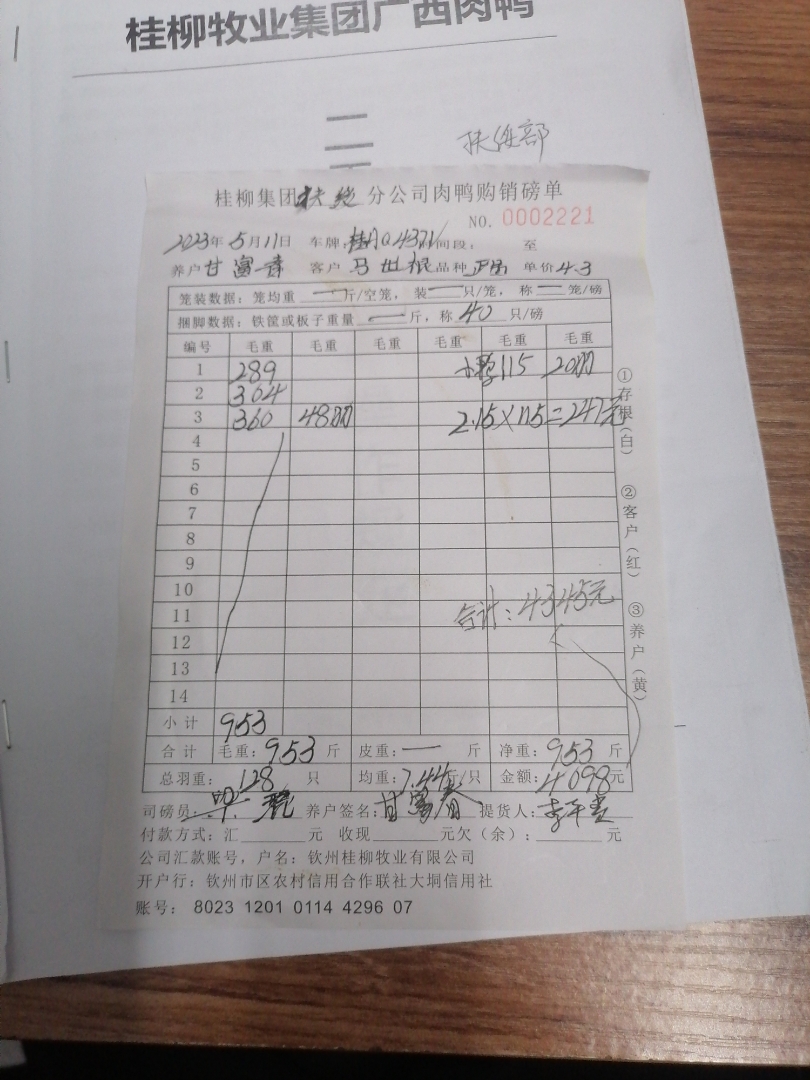 桂柳牧业集团广西肉鸭
扶绥部
桂柳集团扶绥分公司肉鸭购销磅单
NO. 0002221
2023年5月11日 车牌:桂A04371 时间段: 至
养户甘富春 客户马世根 品种 单价4.3
笼装数据: 笼均重 — 斤/空笼, 装 — 只/笼, 称 — 笼/磅
捆脚数据: 铁筐或板子重量 — 斤, 称 40 只/磅
编号 毛重 毛重 毛重 毛重 毛重 毛重
1 289 115 20羽
2 304
3 360 48羽 2.15×115=247元
4
5
6
7
8
9
10
11 合计:4345元
12
13
14
小计 953
合计 毛重: 953 斤 皮重: — 斤 净重: 953 斤
总羽重: 128 只 均重: 7.44斤/只 金额: 4098元
司磅员: 养户签名: 甘富春 提货人:
付款方式: 汇 元 收现 元欠(余): 元
公司汇款账号, 户名: 钦州桂柳牧业有限公司
开户行: 钦州市区农村信用合作联社大垌信用社
账号: 8023 1201 0114 4296 07
①存根(白)
②客户(红)
③养户(黄)